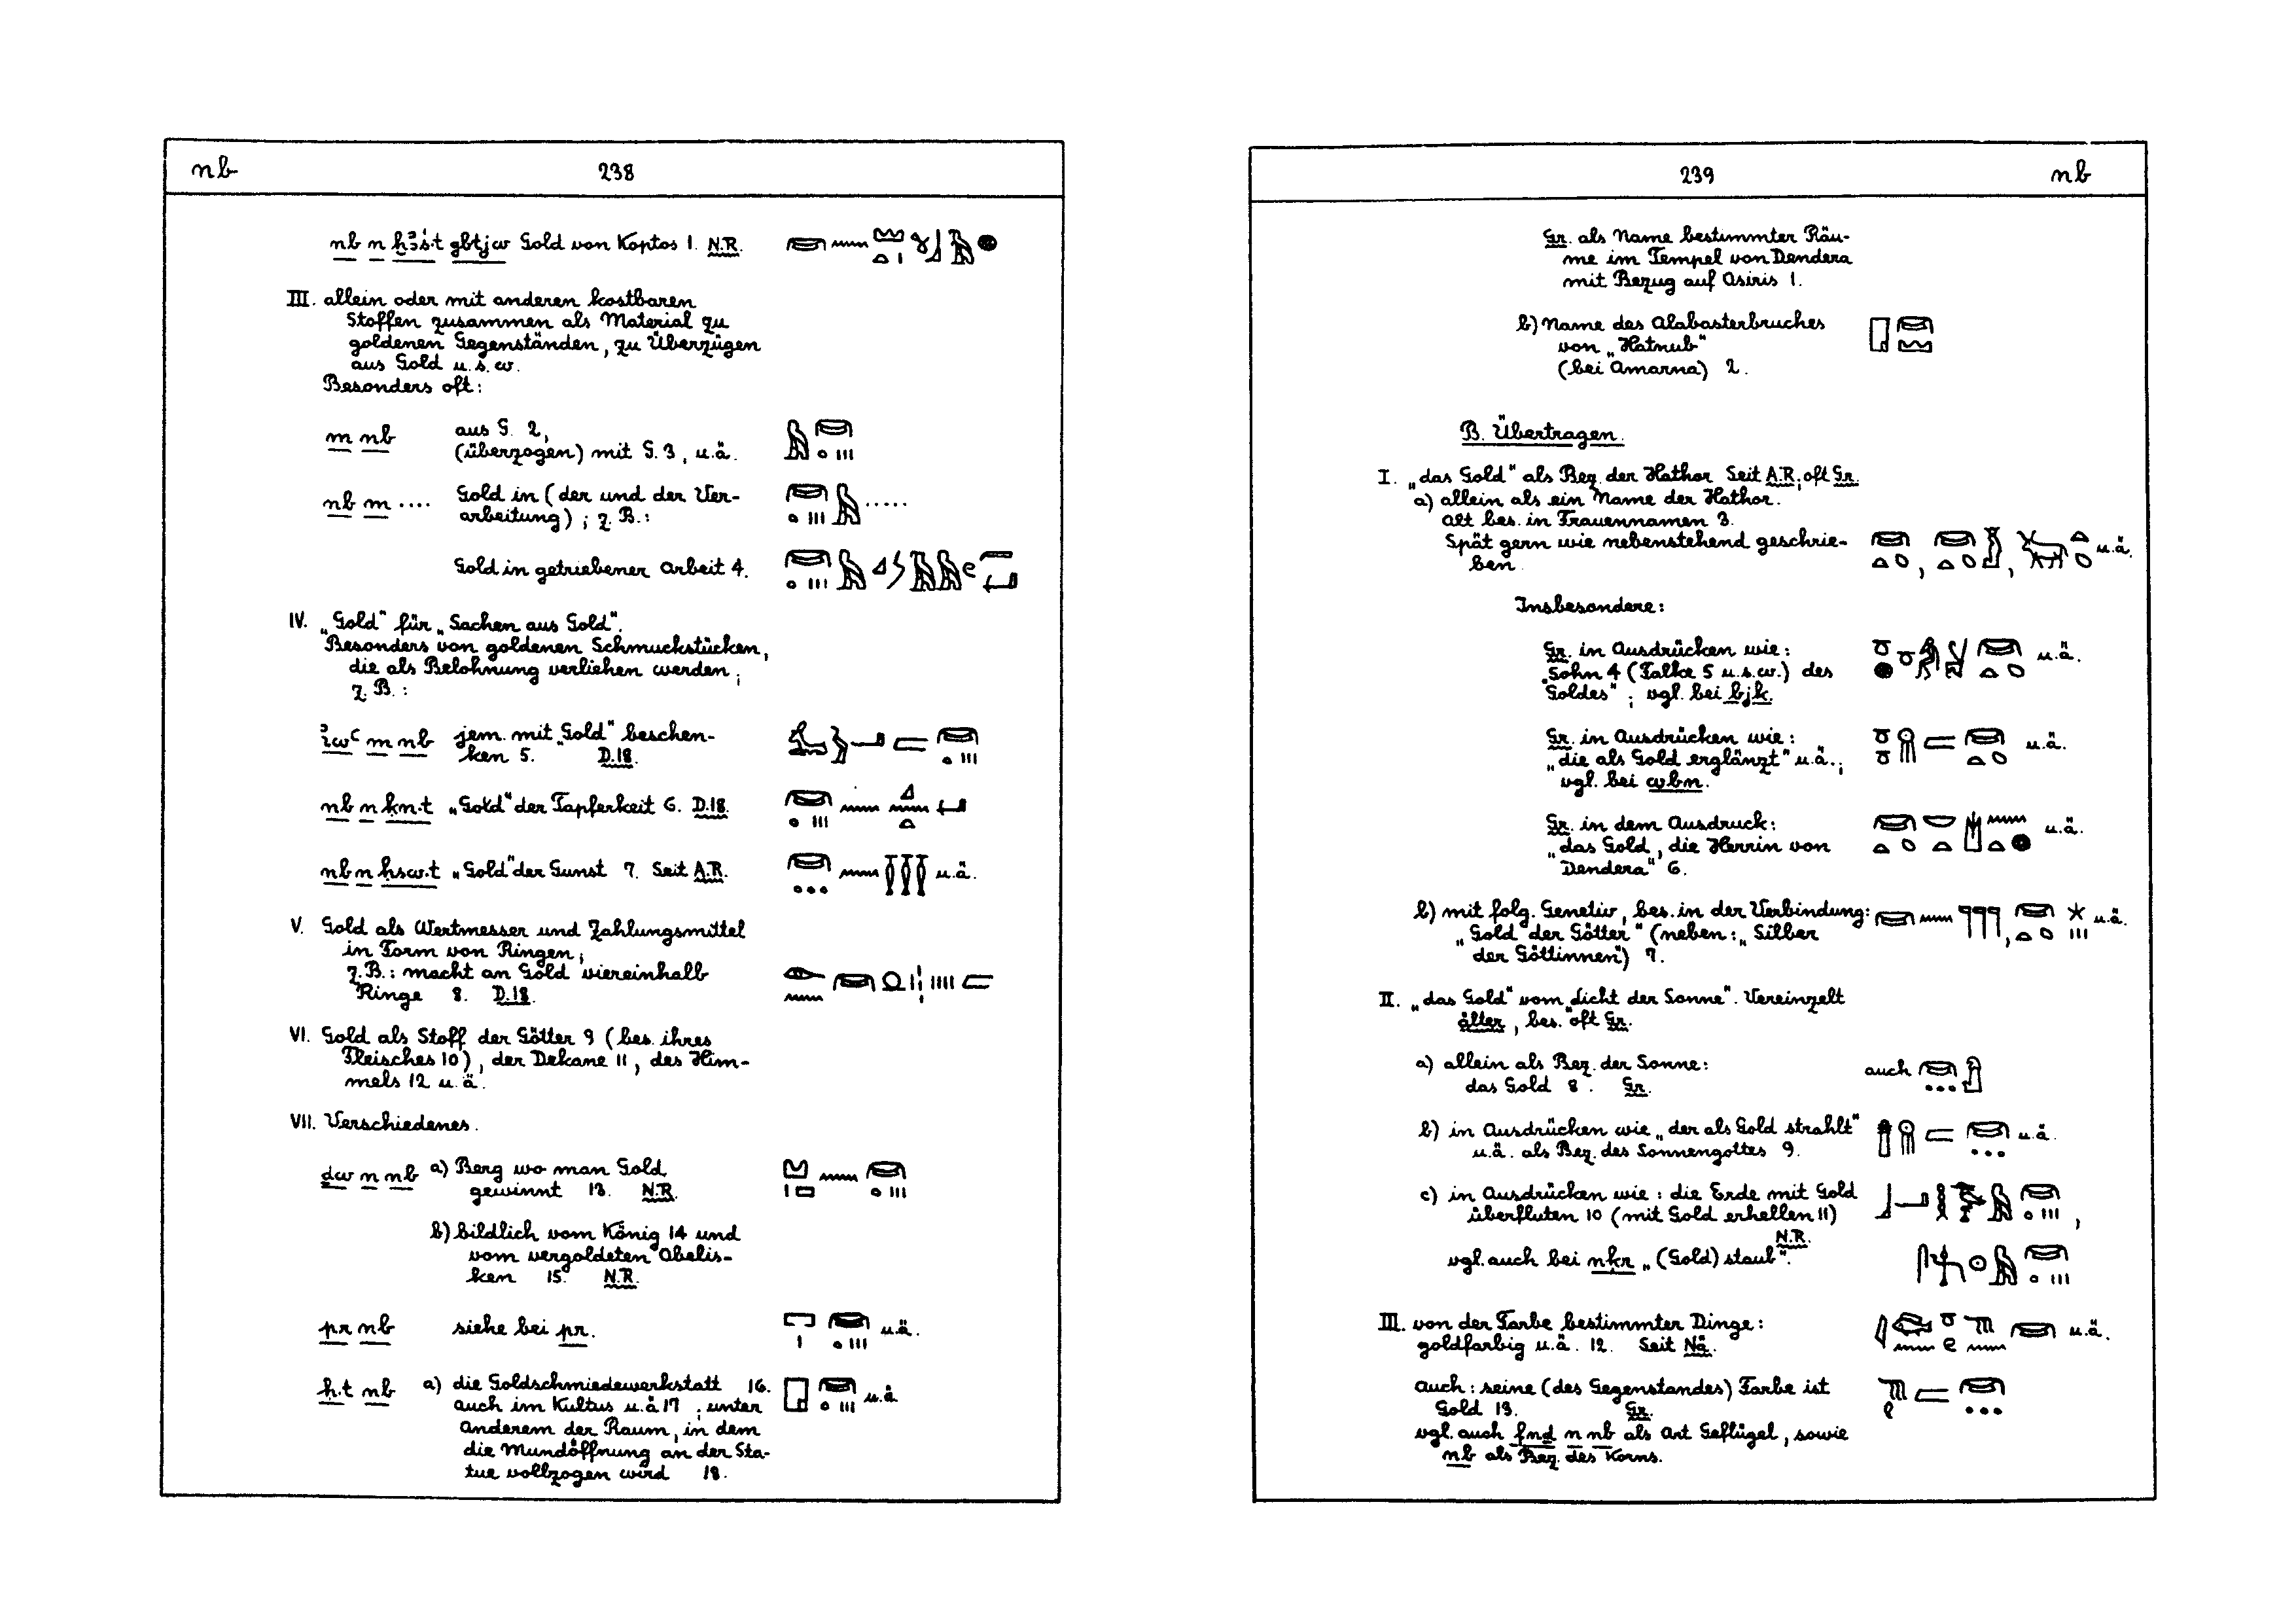 nb 238
nb n ḫꜣś·t gbtjw Gold von Koptos 1. N.R.
III. allein oder mit anderen kostbaren
Stoffen zusammen als Material zu
goldenen Gegenständen, zu Überzügen
aus Gold u.s.w.
Besonders oft:
m nb aus G. 2,
(überzogen) mit G. 3, u.ä.
nb m .... Gold in (der und der Ver-
arbeitung); z.B.:
Gold in getriebener Arbeit 4.
IV. „Gold" für „Sachen aus Gold".
Besonders von goldenen Schmuckstücken,
die als Belohnung verliehen werden;
z.B.:
m nb jem. mit „Gold" beschen-
ken 5. D.18.
nb n ḳn·t „Gold" der Tapferkeit 6. D.18.
nb n ḥsw·t „Gold" der Gunst 7. Seit A.R.
u.ä.
V. Gold als Wertmesser und Zahlungsmittel
in Form von Ringen;
z.B.: macht an Gold viereinhalb
Ringe 8. D.18.
VI. Gold als Stoff der Götter 9 (bes. ihres
Fleisches 10), der Dekane 11, des Him-
mels 12 u.ä.
VII. Verschiedenes.
ḏw n nb a) Berg wo man Gold
gewinnt 13. N.R.
b) bildlich vom König 14 und
vom vergoldeten Obelis-
ken 15. N.R.
pr nb siehe bei pr. u.ä.
ḥ·t nb a) die Goldschmiedewerkstatt 16.
u.ä.
auch im Kultus u.ä. 17; unter
anderem der Raum, in dem
die Mundöffnung an der Sta-
tue vollzogen wird 18.
239 nb
Gr. als Name bestimmter Räu-
me im Tempel von Dendera
mit Bezug auf Osiris 1.
b) Name des Alabasterbruches
von „Hatnub"
(bei Amarna) 2.
B. Übertragen.
I. „das Gold" als Bez. der Hathor Seit A.R., oft Gr.
a) allein als ein Name der Hathor.
Alt bes. in Frauennamen 3.
Spät gern wie nebenstehend geschrie-
ben. u.ä.
Insbesondere:
Gr. in Ausdrücken wie:
u.ä.
„Sohn 4 (Falke 5 u.s.w.) des
Goldes"; vgl. bei bjk.
Gr. in Ausdrücken wie:
u.ä.
„die als Gold erglänzt" u.ä.;
vgl. bei wbn.
Gr. in dem Ausdruck:
u.ä.
„das Gold, die Herrin von
Dendera" 6.
b) mit folg. Genetiv, bes. in der Verbindung:
u.ä.
„Gold der Götter" (neben: „Silber
der Göttinnen") 7.
II. „das Gold" vom „Licht der Sonne". Vereinzelt
älter, bes. oft Gr.
a) allein als Bez. der Sonne:
auch
das Gold 8. Gr.
b) in Ausdrücken wie „der als Gold strahlt"
u.ä.
u.ä. als Bez. des Sonnengottes 9.
c) in Ausdrücken wie: die Erde mit Gold
überfluten 10 (mit Gold erhellen 11)
N.R.
vgl. auch bei nḳr „(Gold)staub".
III. von der Farbe bestimmter Dinge:
u.ä.
goldfarbig u.ä. 12. Seit Nä.
auch: seine (des Gegenstandes) Farbe ist
Gold 13. Gr.
vgl. auch fnḏ n nb als Art Geflügel, sowie
nb als Bez. des Korns.